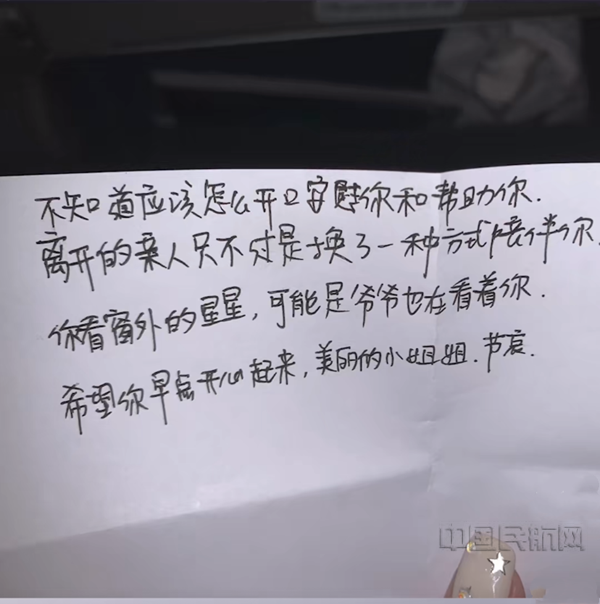 不知道应该怎么开口安慰你和帮助你.
离开的亲人只不过是换了一种方式陪伴你
你看窗外的星星,可能是爷爷也在看着你.
希望你早点开心起来,美丽的小姐姐.节哀.
中国民航网